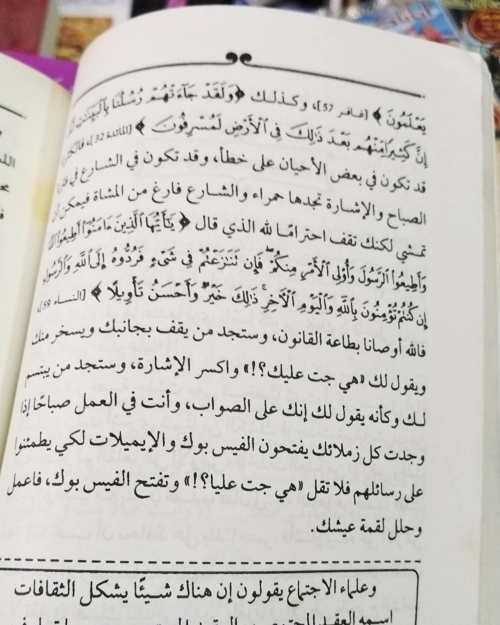 يَعْلَمُونَ ﴾ [غافر 57]، وكذلك ﴿ وَلَقَدْ جَاءَتْهُمْ رُسُلُنَا بِالْبَيِّنَاتِ ثُمَّ
إِنَّ كَثِيرًا مِنْهُمْ بَعْدَ ذَلِكَ فِي الْأَرْضِ لَمُسْرِفُونَ ﴾ [المائدة 32]،
قد تكون في بعض الأحيان على خطأ، وقد تكون في الشارع في
الصباح والإشارة تجدها حمراء والشارع فارغ من المشاة فيمكن أن
تمشي لكنك تقف احترامًا لله الذي قال ﴿ يَا أَيُّهَا الَّذِينَ آمَنُوا أَطِيعُوا اللَّهَ
وَأَطِيعُوا الرَّسُولَ وَأُولِي الْأَمْرِ مِنْكُمْ فَإِنْ تَنَازَعْتُمْ فِي شَيْءٍ فَرُدُّوهُ إِلَى اللَّهِ وَالرَّسُولِ
إِنْ كُنْتُمْ تُؤْمِنُونَ بِاللَّهِ وَالْيَوْمِ الْآخِرِ ذَلِكَ خَيْرٌ وَأَحْسَنُ تَأْوِيلًا ﴾ [النساء 59]
فالله أوصانا بطاعة القانون، وستجد من يقف بجانبك ويسخر منك
ويقول لك «هي جت عليك؟!» واكسر الإشارة، وستجد من يبتسم
لك وكأنه يقول لك إنك على الصواب، وأنت في العمل صباحًا إذا
وجدت كل زملائك يفتحون الفيس بوك والإيميلات لكي يطمئنوا
على رسائلهم فلا تقل «هي جت عليا؟!» وتفتح الفيس بوك، فاعمل
وحلل لقمة عيشك.
وعلماء الاجتماع يقولون إن هناك شيئًا يشكل الثقافات
اسمه العقد